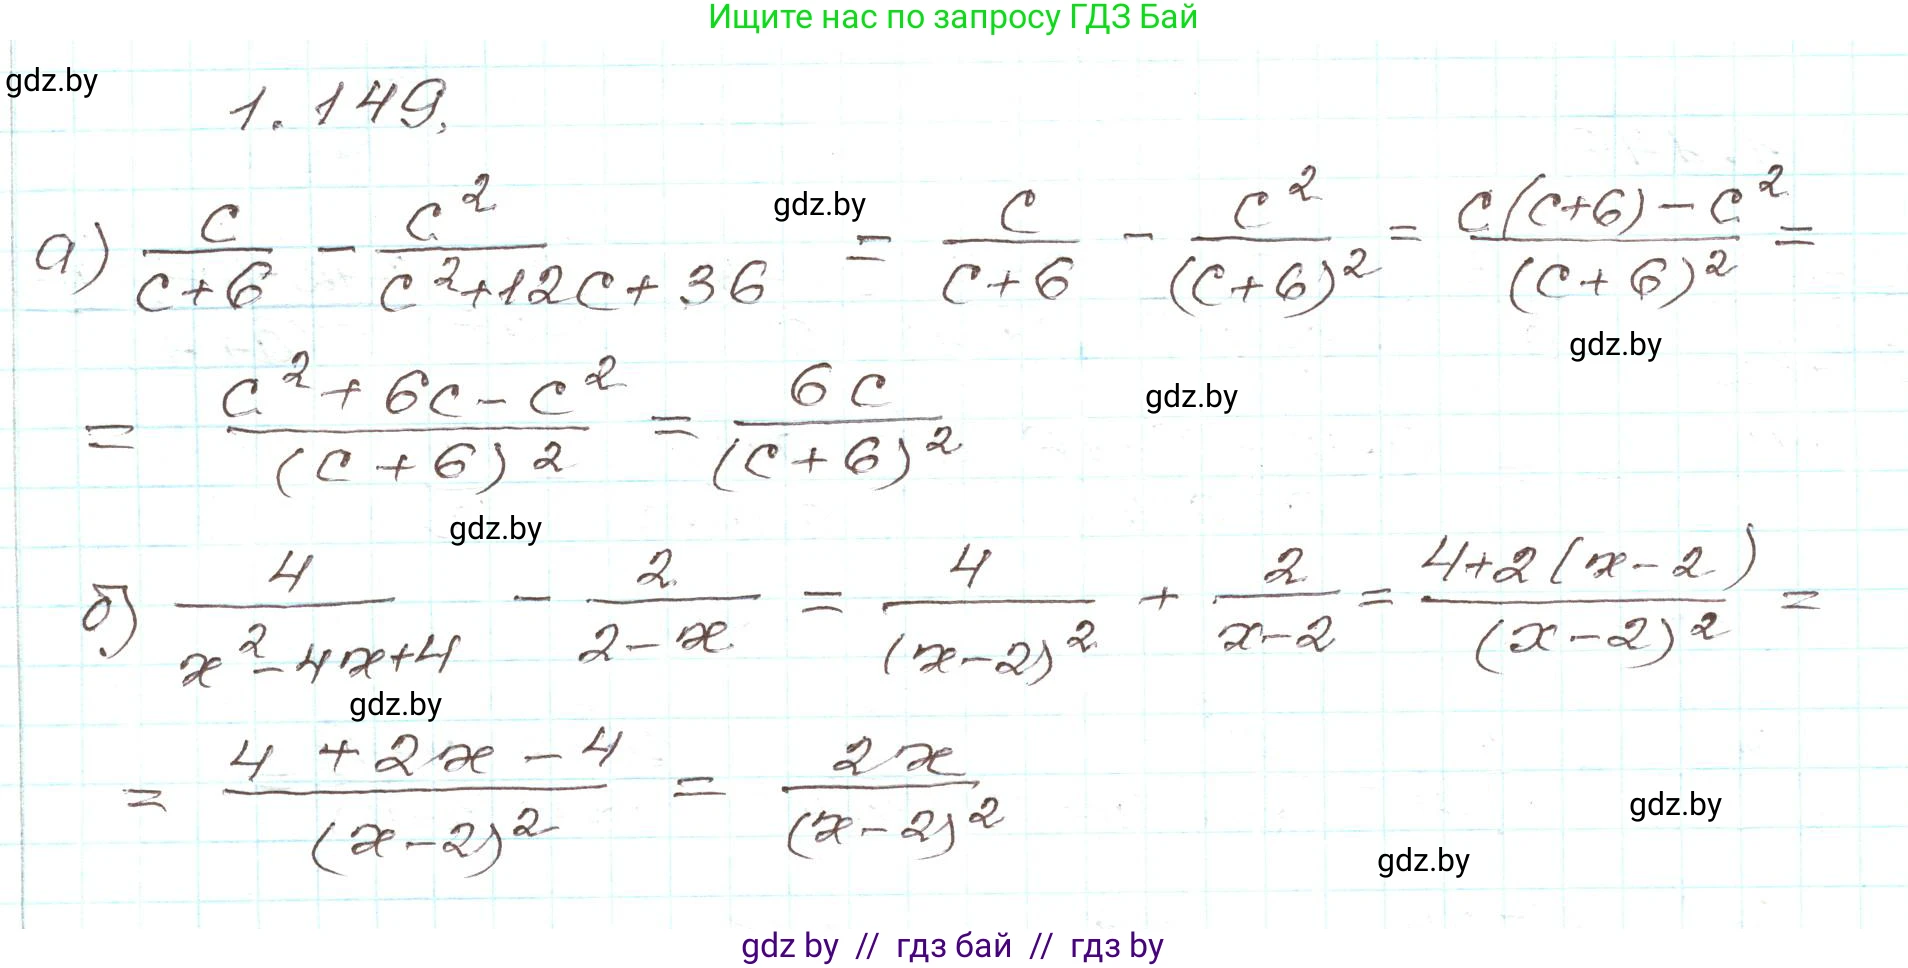 Ищите нас по запросу ГДЗ Бай
gdz.by
1.149.
а) c/(c+6) - c²/(c²+12c+36) = c/(c+6) - c²/(c+6)² = (c(c+6)-c²)/(c+6)² =
gdz.by
gdz.by
= (c²+6c-c²)/(c+6)² = 6c/(c+6)²
gdz.by
gdz.by
б) 4/(x²-4x+4) - 2/(2-x) = 4/(x-2)² + 2/(x-2) = (4+2(x-2))/(x-2)² =
gdz.by
= (4+2x-4)/(x-2)² = 2x/(x-2)²
gdz.by
gdz.by
gdz by // гдз бай // гдз by